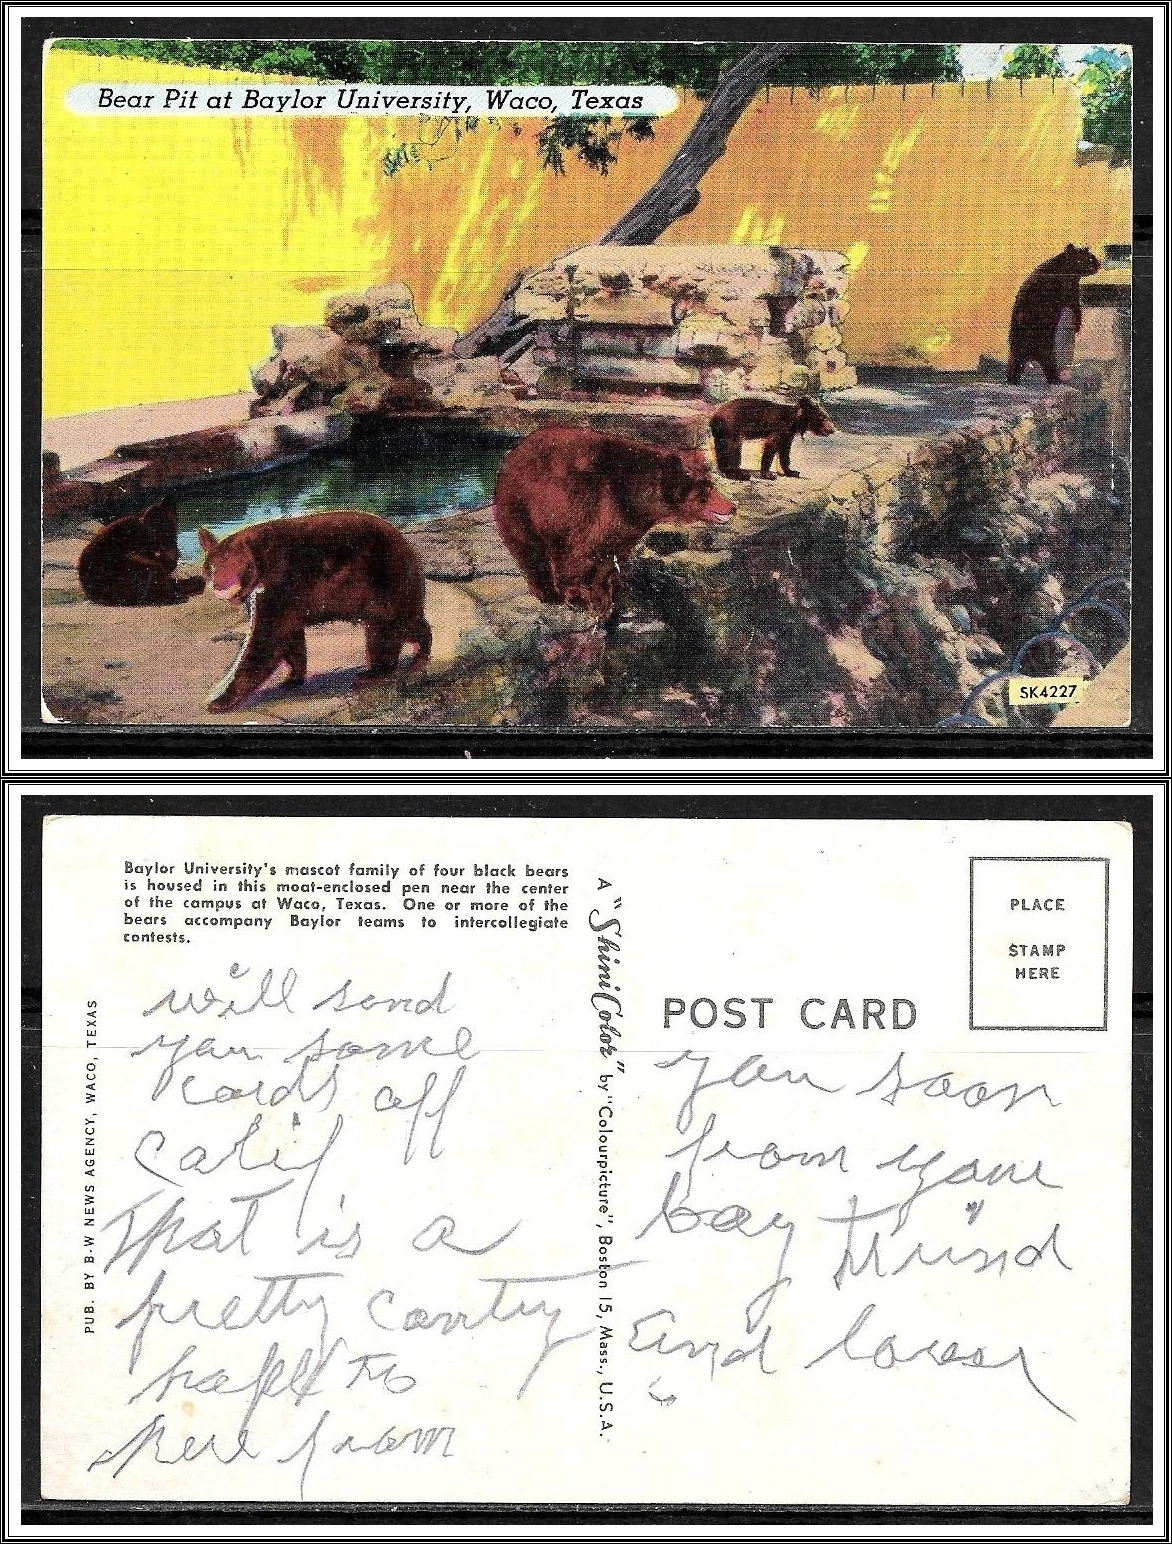 Bear Pit at Baylor University, Waco, Texas
SK4227
Baylor University's mascot family of four black bears
is housed in this moat-enclosed pen near the center
of the campus at Waco, Texas. One or more of the
bears accompany Baylor teams to intercollegiate
contests.
PUB. BY B-W NEWS AGENCY, WACO, TEXAS
A "ShiniColor" by "Colourpicture", Boston 15, Mass., U.S.A.
PLACE
STAMP
HERE
POST CARD
will send
you some
cards off
Calif
that is a
pretty contry
to
here from
you soon
from your
boy frind
and lover